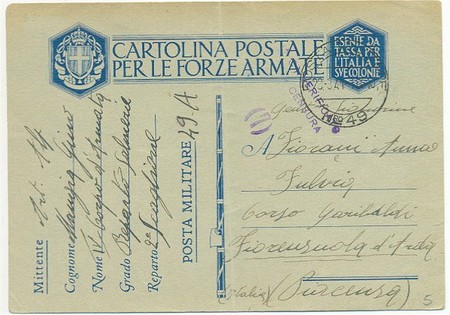 CARTOLINA POSTALE
PER LE FORZE ARMATE
ESENTE DA
TASSA PER
L'ITALIA E
SVE COLONIE
VERIFICATO
CENSURA
49
Mittente Art. Alp.
Cognome
Nome IV Corpo d'Armata
Grado Reparto Salmerie
Reparto 2°
POSTA MILITARE 49.A
A Fiorani Anna
Fulvia
Corso Garibaldi
Fiorenzuola d'Arda
(Italia) (Piacenza)
5